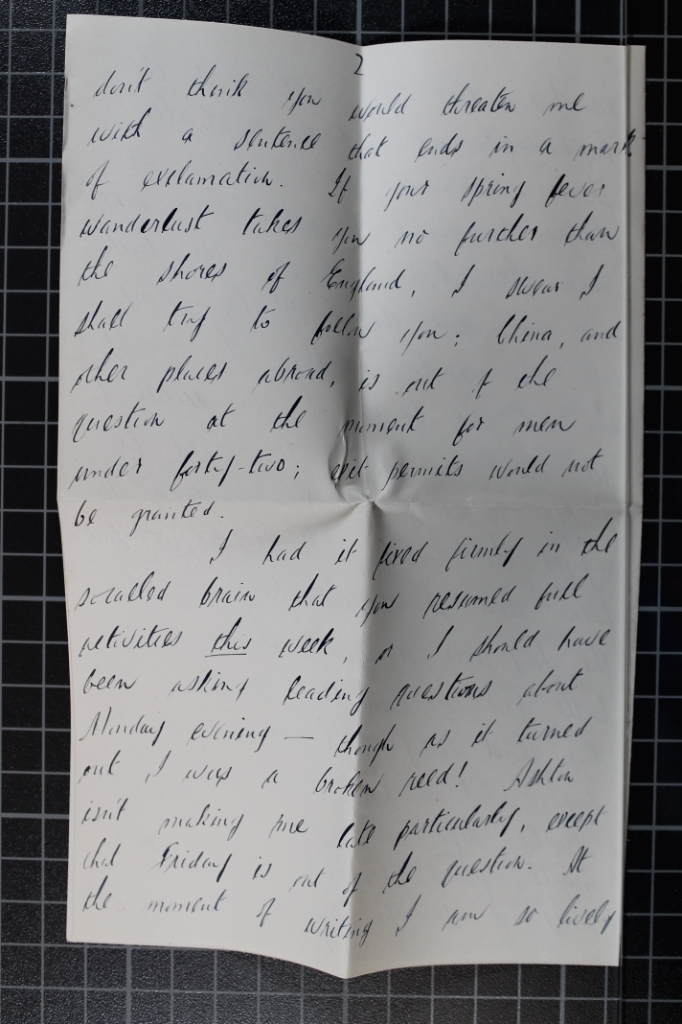 2
don't think you would threaten me
with a sentence that ends in a mark
of exclamation. If your spring fever
wanderlust takes you no further than
the shores of England, I swear I
shall try to follow you; China, and
other places abroad, is out of the
question at the moment for men
under forty-two; exit permits would not
be granted.
I had it fixed firmly in the
so-called brain that you resumed full
activities this week, or I should have
been asking leading questions about
Monday evening — though as it turned
out I was a broken reed! Ashton
isn't making me late particularly, except
that Friday is out of the question. At
the moment of writing I am so lively